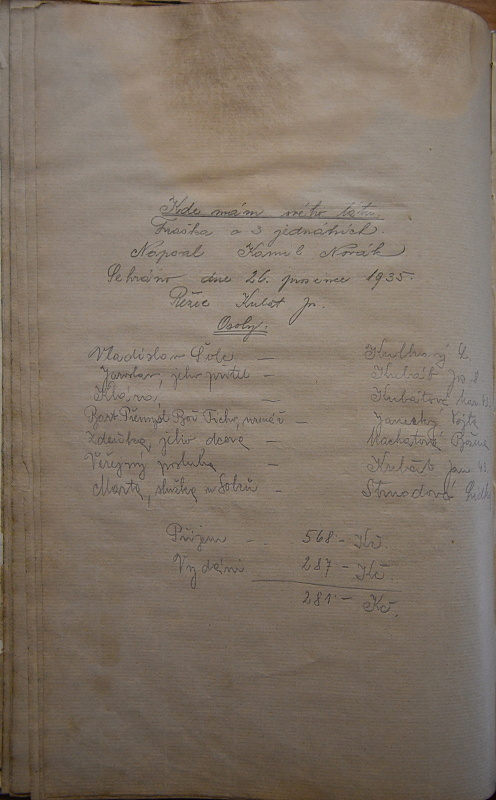 Kde mám svého tchu.
Fraška o 3 jednáních.
Napsal Kamil Novák
Sehráno dne 26. prosince 1935.
Režie Kubát Jos.
Osoby:
Vladislav Šolc —
Jaroslav, jeho přítel — Kubát Jos.
Klára, — Kubátová
Bart. Přemysl Boř. Tichý, rentiér — Janecký Vojtě
Zdeňka, jeho dcera — Machatová Božena
Veřejný posluha — Kubát Jan 42
Marta, služka u Šolců — Strnadová
Příjem — 568 — Kč
Vydání 287 — Kč.
281 — Kč.